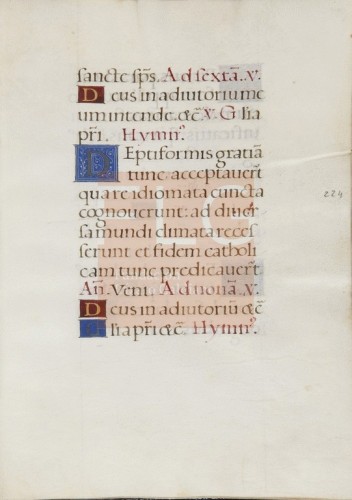 sancte sp̄s. Ad sextā. ℣.
Deus in adiutorium me
um intende. &c̄. ℣. Gl̄ia
pr̄i. Hymn⁹.
Septiformis gratiā
tunc acceptauer̄t
quare idiomata cuncta
cognouerunt: ad diuer
sa mundi climata reces
serunt et fidem catholi
cam tunc predicauer̄t.
Añ. Veni. Ad nonā. ℣.
Deus in adiutoriū &c̄
Gl̄ia pr̄i &c̄. Hymn⁹.
224